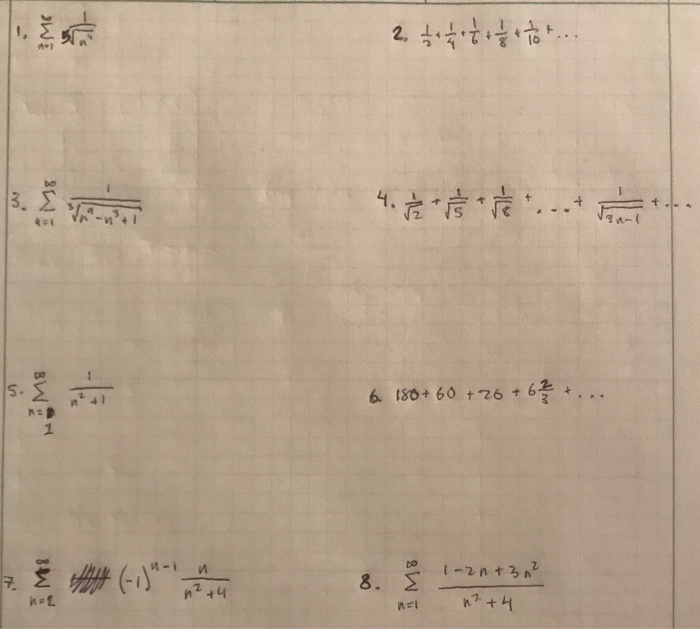 1. \sum_{n=1}^{\infty} \frac{1}{\sqrt[5]{n^4}}
2. \frac{1}{2}+\frac{1}{4}+\frac{1}{6}+\frac{1}{8}+\frac{1}{10}+...
3. \sum_{n=1}^{\infty} \frac{1}{\sqrt[3]{n^9-n^3+1}}
4. \frac{1}{\sqrt{2}}+\frac{1}{\sqrt{5}}+\frac{1}{\sqrt{8}}+...+\frac{1}{\sqrt{3n-1}}+...
5. \sum_{n=1}^{\infty} \frac{1}{n^2+1}
6. 180+60+20+6\frac{2}{3}+...
7. \sum_{n=2}^{\infty} (-1)^{n-1} \frac{n}{n^2+4}
8. \sum_{n=1}^{\infty} \frac{1-2n+3n^2}{n^2+4}